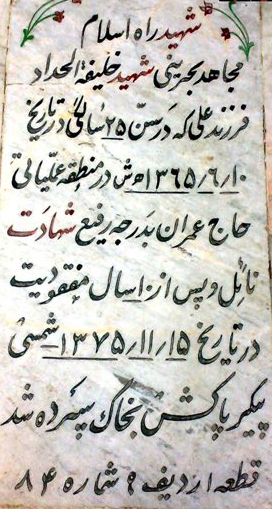 شهید راه اسلام
مجاهد بحرینی شهید خلیفة الحداد
فرزند علی که در سن ۲۵ سالگی در تاریخ
۱۳۶۵/۶/۱۰ ه ش در منطقه عملیاتی
حاج عمران بدرجه رفیع شهادت
نائل و پس از ۱۰ سال مفقودیت
در تاریخ ۱۳۷۵/۱۱/۱۵ شمسی
پیکر پاکش بخاک سپرده شد
قطعه ۱ ردیف ۹ شماره ۸۴